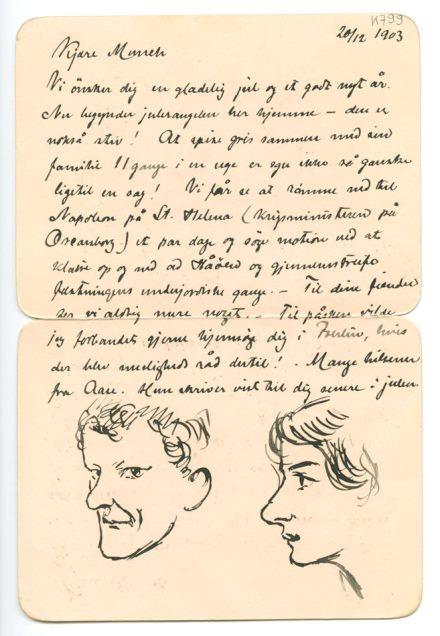 K 799
20/12 1903
Kjære Munch
Vi ønsker dig en gladelig jul og et godt nyt år.
Nu begynder julerangelen her hjemme – den er
nokså stiv! At spise gris sammen med sin
familie 11 gange i en uge er sgu ikke så ganske
ligetil en sag! Vi får se at rømme ned til
Napoleon på St. Helena (Krigsministeren på
Oscarsborg) et par dage og søge motion ved at
klatre op og ned ad Håøen og gjennemstreife
fæstningens underjordiske gange. – Til dine fiender
ser vi aldrig mere noget. – Til påsken vilde
jeg forbandet gjerne hjemsøge dig i Berlin, hvis
der blev muligheds råd dertil! . Mange hilsener
fra Aase. Hun skriver vist til dig senere i julen.